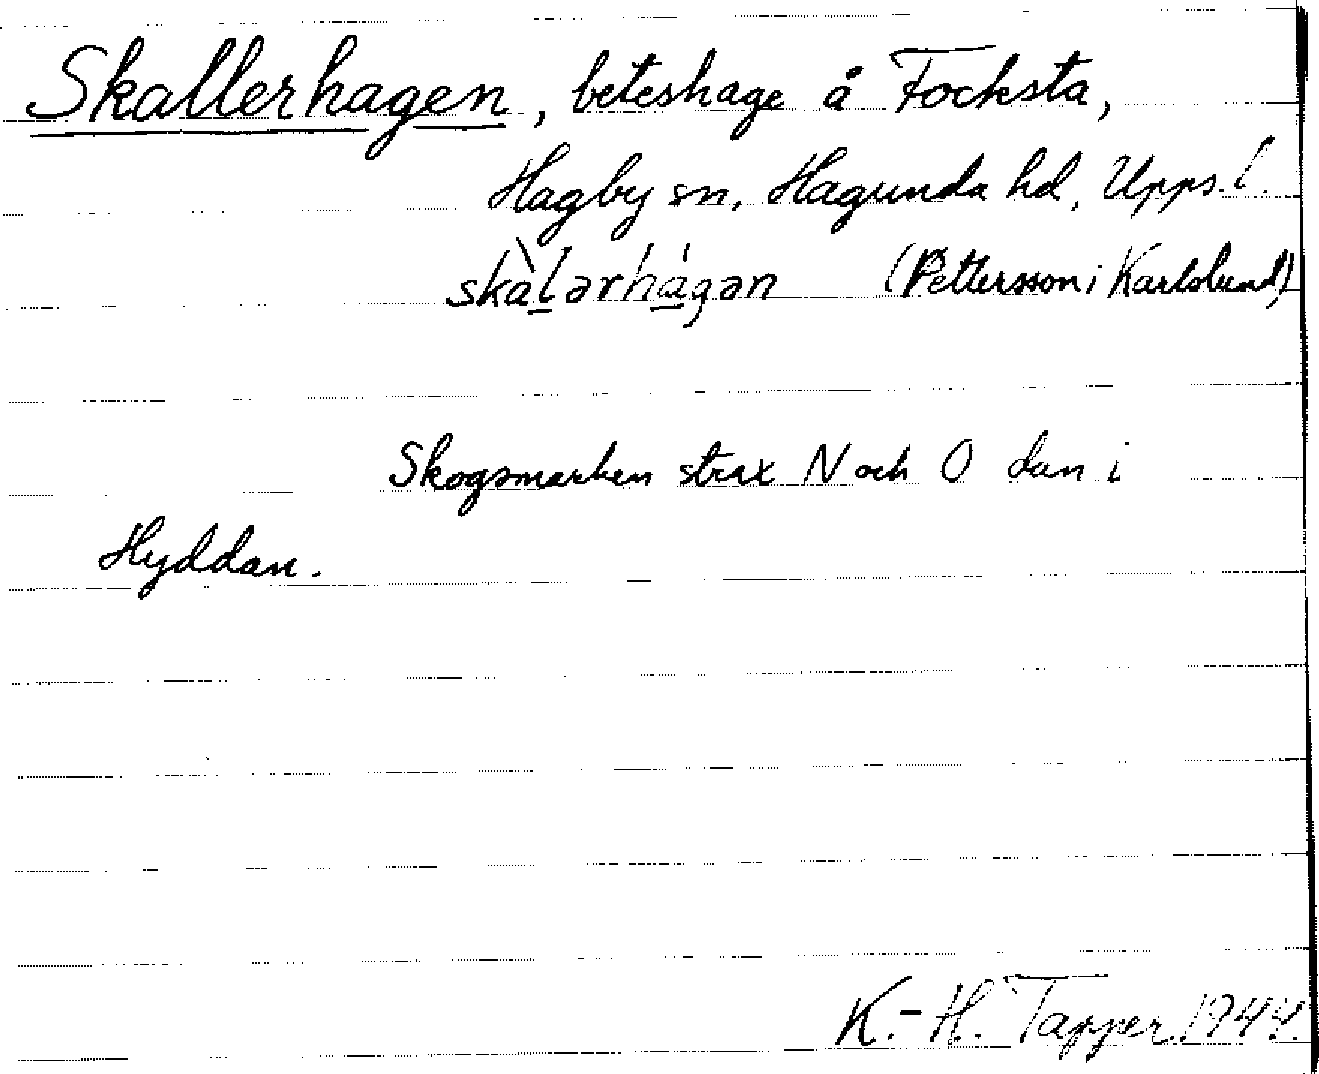 Skallerhagen, beteshage å Focksta,
Hagby sn, Hagunda hd, Upps. l.
skàlərhágən (Pettersson i Karlslund)
Skogsmarken strax N och O dan i
Hyddan.
K.-H. Tapper 1944.